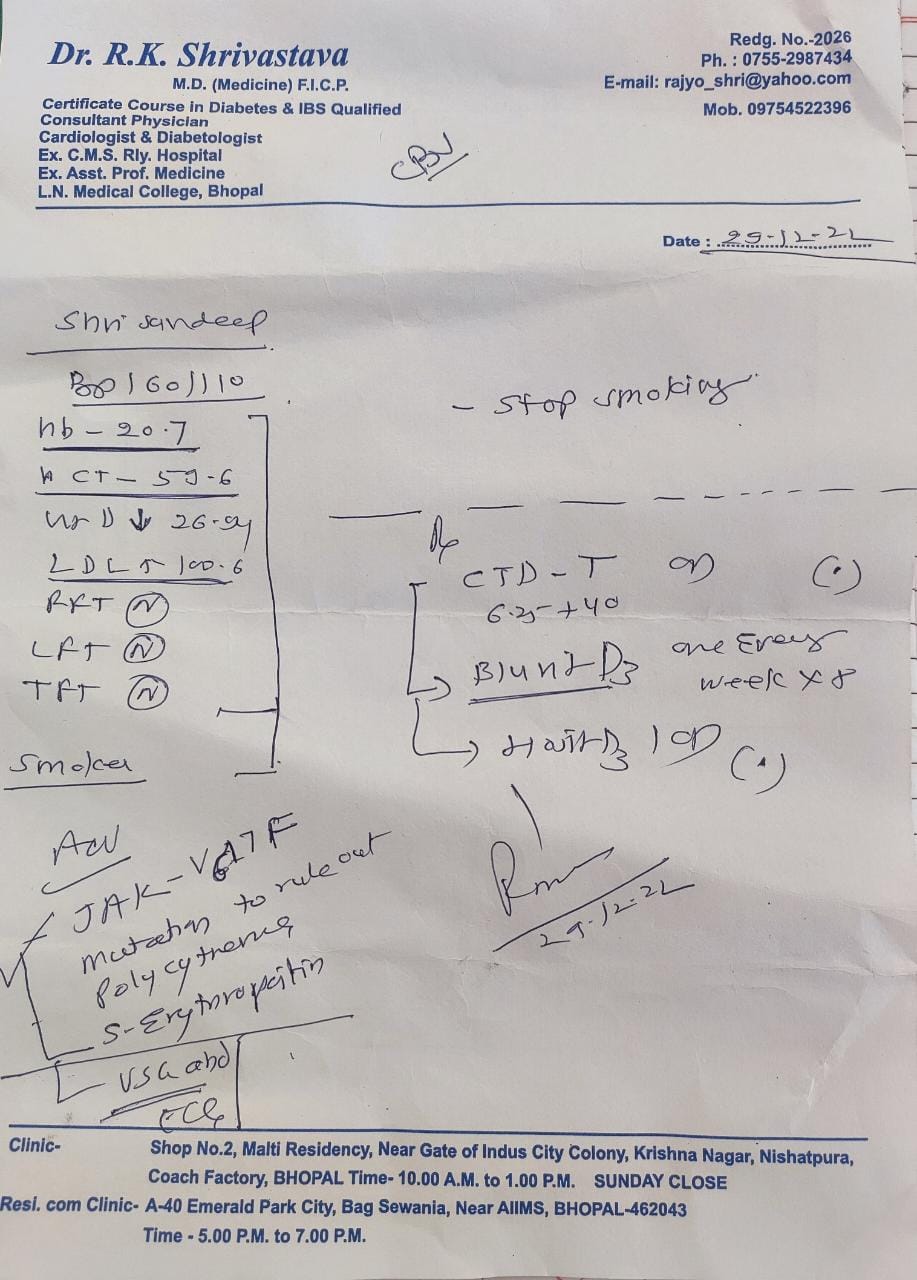 Dr. R.K. Shrivastava
M.D. (Medicine) F.I.C.P.
Certificate Course in Diabetes & IBS Qualified
Consultant Physician
Cardiologist & Diabetologist
Ex. C.M.S. Rly. Hospital
Ex. Asst. Prof. Medicine
L.N. Medical College, Bhopal
Redg. No.-2026
Ph. : 0755-2987434
E-mail: rajyo_shri@yahoo.com
Mob. 09754522396
Date : 29-12-22
Shri Sandeep
BP 160/110
hb - 20.7
HCT - 59.6
Vit D ↓ 26.
LDL ↑ 100.6
RFT (N)
LFT (N)
TFT (N)
Smoker
Adv
JAK-V617F
mutation to rule out
Polycythemia
S-Erythropoitin
USG abd
ECG
- Stop smoking
Rx
CTD-T OD
6.25 + 40
Blunt D3 one Every
week x 8
D3 1 OD
29-12-22
Clinic- Shop No.2, Malti Residency, Near Gate of Indus City Colony, Krishna Nagar, Nishatpura,
Coach Factory, BHOPAL Time- 10.00 A.M. to 1.00 P.M. SUNDAY CLOSE
Resi. com Clinic- A-40 Emerald Park City, Bag Sewania, Near AIIMS, BHOPAL-462043
Time - 5.00 P.M. to 7.00 P.M.